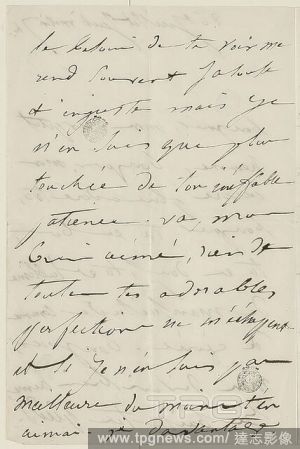 le besoin de te voir me
rend souvent jalouse
et injuste mais je
n'en suis que plus
touchée de ton ineffable
patience. va, mon
bien aimé,
toutes tes adorables
perfections ne m'échappent
et si je n'en suis pas
meilleure du moins t'en
aimai je davantage
TPG
www.tpgnews.com 達志影像